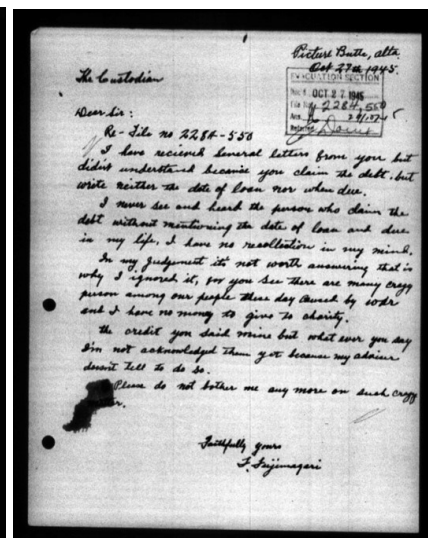 Picture Butte, alta.
Oct 27th 1945.
The Custodian
EVACUATION SECTION
Rec'd OCT 27 1945
File No. 2284,550
Ans.
Referred
Dear Sir:
Re- File no 2284-550
I have recieved several letters from your but
didn't understand because you claim the debt, but
write neither the date of loan nor when due.
I never see and heard the person who claim the
debt without mentioning the date of loan and due
in my life, I have no recollection in my mind.
In my judgement it's not worth answering that is
why I ignored it, for you see there are many crazy
person among our people these day caused by war
and I have no money to give to charity.
the credit you said mine but what ever you say
I'm not acknowledged them yet because my adviser
doesn't tell to do so.
Please do not bother me any more on such crazy
Faithfully yours